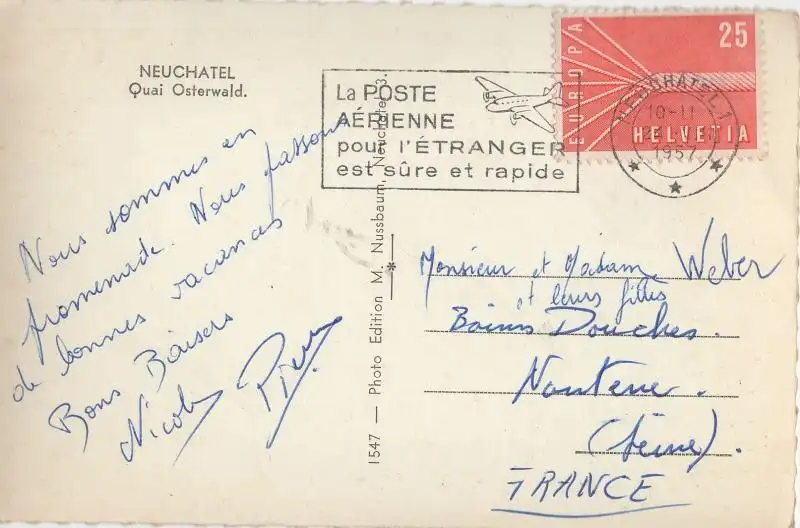 NEUCHATEL
Quai Osterwald.
Nous sommes en
promenade. Nous passons
de bonnes vacances
Bons Baisers
Nicole Pierre
1547 — Photo Edition M. Nussbaum, Neuchatel 3.
*
La POSTE
AÉRIENNE
pour l'ÉTRANGER
est sûre et rapide
EUROPA
25
HELVETIA
NEUCHATEL 1
10-11
1957
Monsieur et Madame Weber
et leurs filles
Bains Douches.
Nanterre.
(Seine).
FRANCE